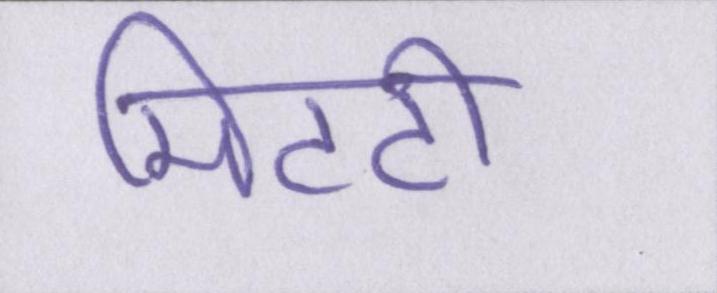 मिटटी